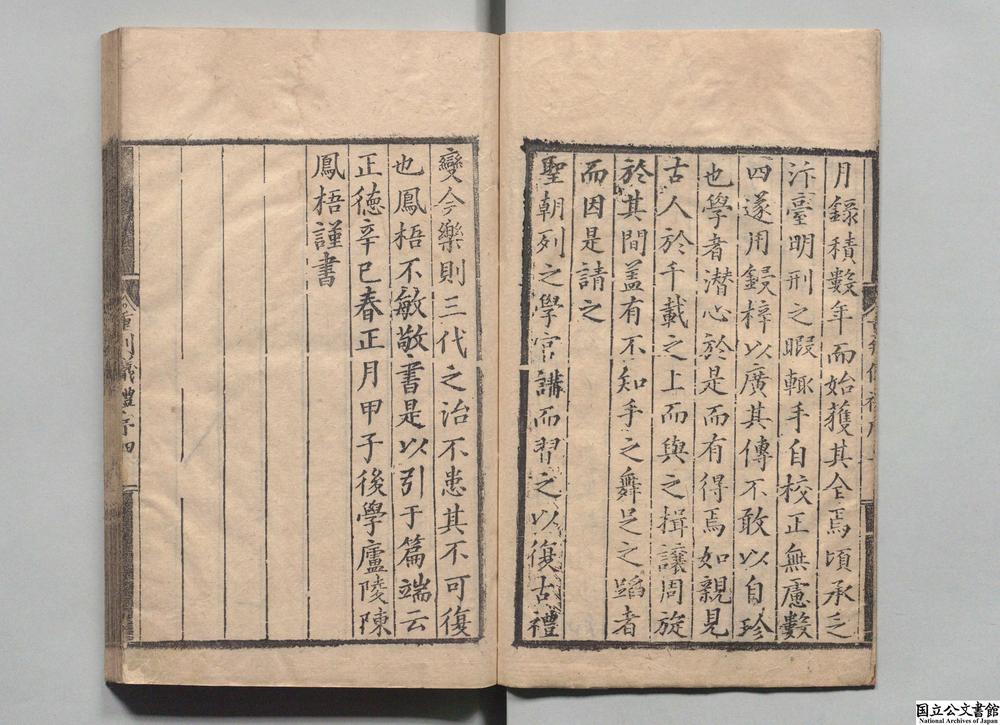 月錄積數年而始獲其全焉頃承乏
汴臺明刑之暇輙手自校正無慮數
四遂用鋟梓以廣其傳不敢以自珍
也學者潜心於是而有得焉如親見
古人於千載之上而與之揖讓周旋
於其間盖有不知手之舞足之蹈者
而因是請之
聖朝列之學官講而習之以復古禮
變今樂則三代之治不患其不可復
也鳳梧不敏敬書是以引于篇端云
正德辛巳春正月甲子後學廬陵陳
鳳梧謹書
重刊儀禮序四
国立公文書館
National Archives of Japan